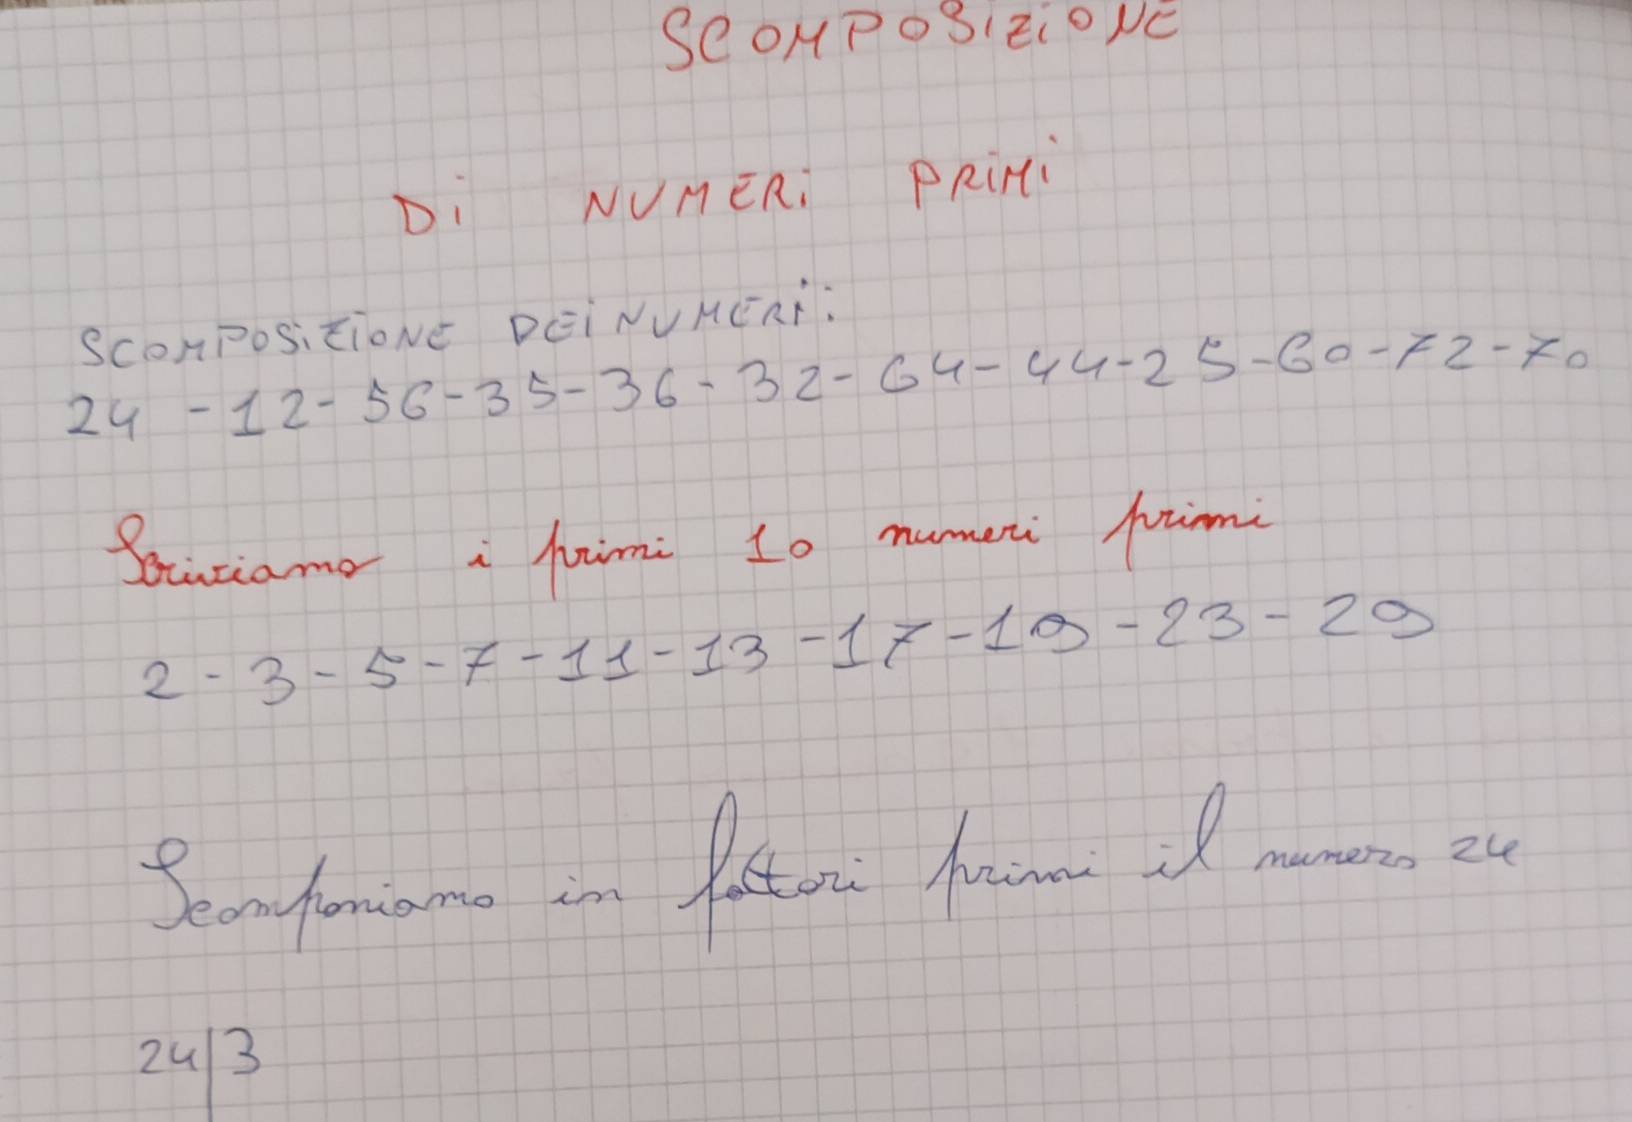 SCOMPOSIZIONE
Di NUMERi PRiMi
SCOMPOSIZIONE DEI NUMERI:
24 - 12 - 56 - 35 - 36 - 32 - 64 - 44 - 25 - 60 - 72 - 70
Scriviamo i primi 10 numeri primi
2 - 3 - 5 - 7 - 11 - 13 - 17 - 19 - 23 - 29
Scomponiamo in fattori primi il numero 24
24|3